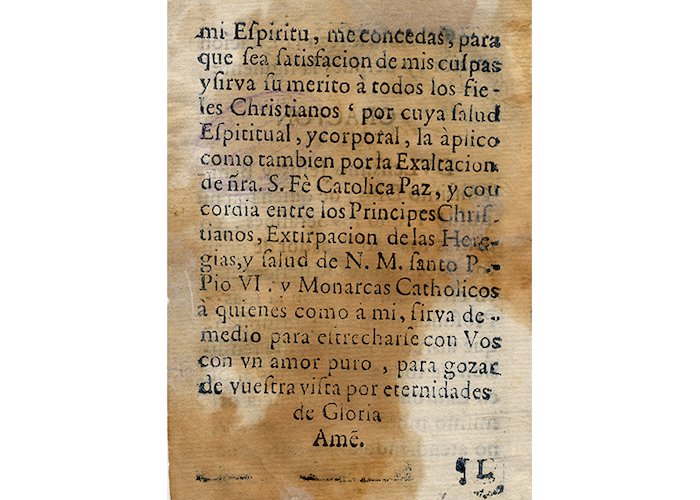 mi Eſpiritu, me concedas, para
que ſea ſatisfacion de mis culpas
y ſirva ſu merito à todos los fie-
les Christianos ‘ por cuya ſalud
Eſpititual, y corporal, la àplico
como tambien por la Exaltacion
de ñra. S. Fè Catolica Paz, y con
cordia entre los Principes Chriſ-
tianos, Extirpacion de las Here-
gias, y ſalud de N. M. ſanto P.
Pio VI. y Monarcas Catholicos
à quienes como à mi, ſirva de
medio para eſtrecharſe con Vos
con vn amor puro, para gozar
de vueſtra viſta por eternidades
de Gloria
Amē.